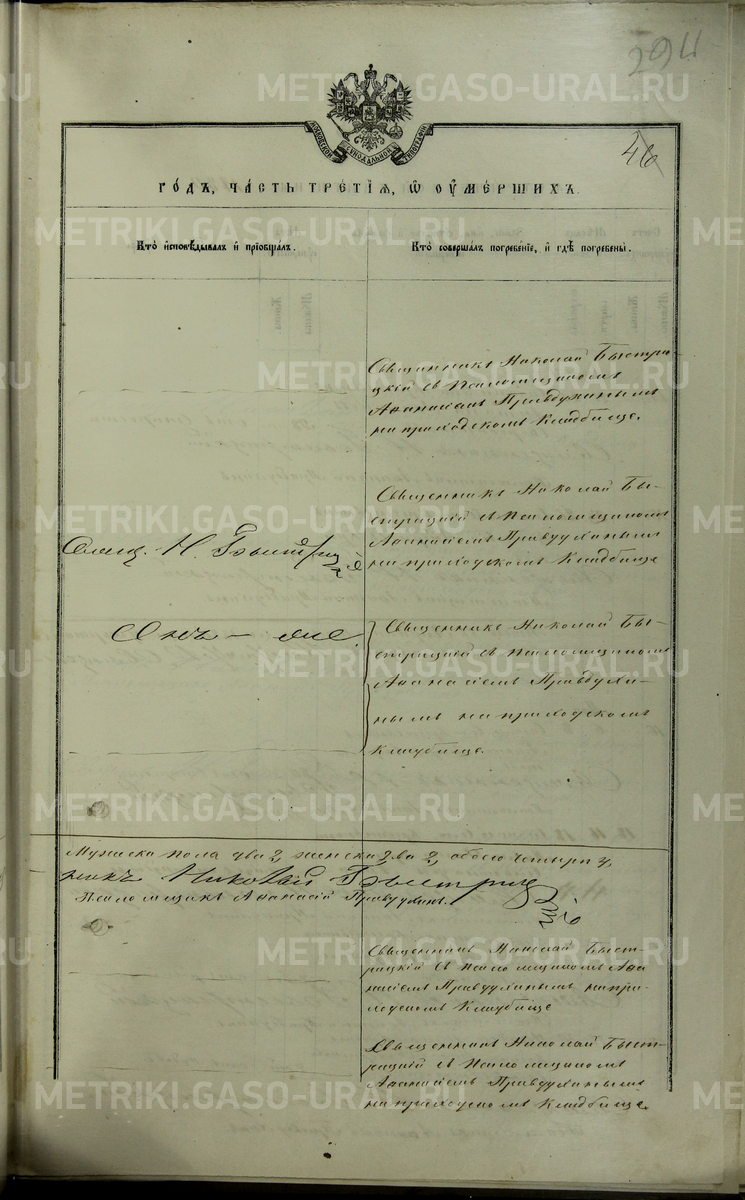 294
46
МОСКОВСКОЙ СѴНОДАЛЬНОЙ ТИПОГРАФІИ
го́дъ, ча́сть тре́тїѧ, ѡ҆ ᲂу҆ме́ршихъ.
Кто̀ и҆сповѣ́дывалъ и҆ прїобща́лъ.
Кто̀ соверша́лъ погребе́нїе, и҆ гдѣ̀ погребены̀.
Священникъ Николай Быстри-
цкій съ Псаломщикомъ
Аѳанасіемъ Правдухинымъ
на приходскомъ Кладбище.
Священникъ Николай Бы-
стрицкій съ Псаломщикомъ
Аѳанасіемъ Правдухинымъ
на приходскомъ Кладбище
Свящ. Н. Быстрицкій
Онъ – же
Священникъ Николай Бы-
стрицкій съ Псаломщикомъ
Аѳанасіемъ Правдухи-
нымъ на приходскомъ
Кладбище.
Мужска пола два 2, женска два 2, обоего четыри 4,
никъ Николай Быстрицкій
Псаломщикъ Аѳанасій Правдухинъ.
Священникъ Николай Быст-
рицкій съ Псаломщикомъ Аѳа-
насіемъ Правдухинымъ на при-
ходскомъ Кладбище
Священникъ Николай Быст-
рицкій съ Псаломщикомъ
Аѳанасіемъ Правдухинымъ
на приходскомъ Кладбище.
METRIKI.GASO-URAL.RU